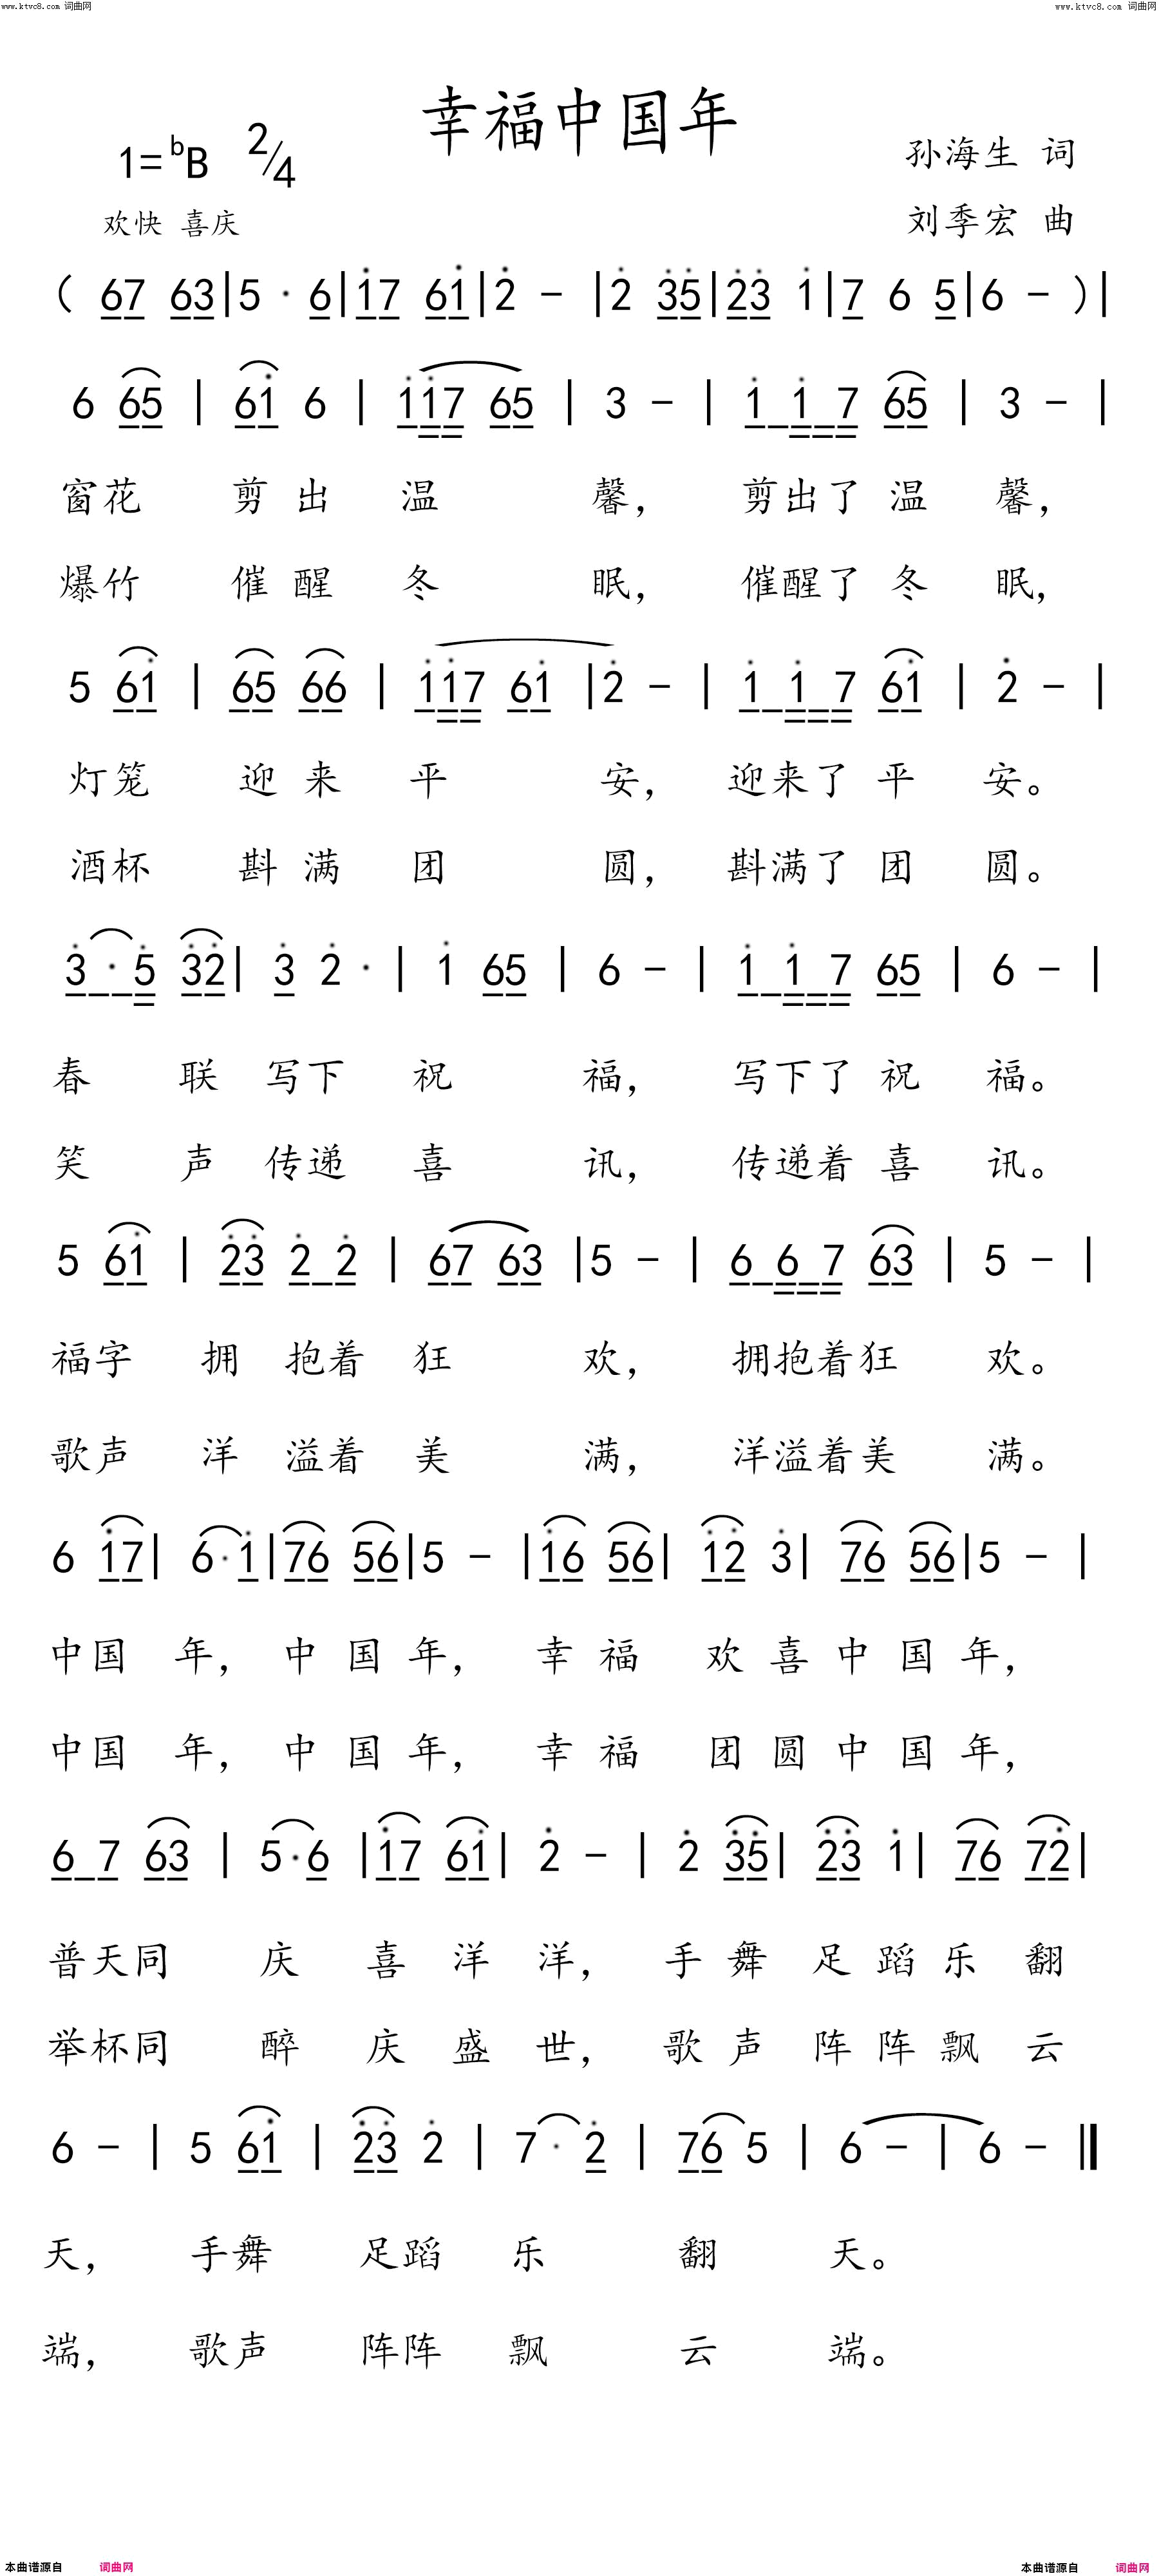 www.ktvc8.com 词曲网 www.ktvc8.com 词曲网
幸福中国年
1=bB 2/4
孙海生 词
欢快 喜庆
刘季宏 曲
( 67 63|5 · 6|i7 6i|2̇ - |2̇ 3̇5̇|2̇3̇ i|7 6 5|6 - )|
6 65 | 6i 6 | ii7 65 | 3 - | i i 7 65 | 3 - |
窗花 剪出温 馨， 剪出了温 馨，
爆竹 催醒冬 眠， 催醒了冬 眠，
5 6i | 65 66 | ii7 6i |2̇ - | i i 7 6i | 2̇ - |
灯笼 迎来平 安， 迎来了平 安。
酒杯 斟满团 圆， 斟满了团 圆。
3̇ · 5̇ 3̇2̇| 3̇ 2̇ · | i 65 | 6 - | i i 7 65 | 6 - |
春 联 写下 祝 福， 写下了祝 福。
笑 声 传递 喜 讯， 传递着喜 讯。
5 6i | 2̇3̇ 2̇ 2̇ | 67 63 |5 - | 6 6 7 63 | 5 - |
福字 拥 抱着 狂 欢， 拥抱着狂 欢。
歌声 洋 溢着 美 满， 洋溢着美 满。
6 i7| 6 · i|76 56|5 - |i6 56| i2̇ 3̇| 76 56|5 - |
中国 年， 中国年， 幸福 欢喜中国年，
中国 年， 中国年， 幸福 团圆中国年，
6 7 63 | 5 · 6 |i7 6i| 2̇ - | 2̇ 3̇5̇| 2̇3̇ i| 76 72̇|
普天同 庆 喜洋洋， 手舞足蹈乐翻
举杯同 醉 庆盛世， 歌声阵阵飘云
6 - | 5 6i | 2̇3̇ 2̇ | 7 · 2̇ | 76 5 | 6 - | 6 - ‖
天， 手舞 足蹈乐 翻 天。
端， 歌声 阵阵飘 云 端。
本曲谱源自 词曲网 本曲谱源自 词曲网